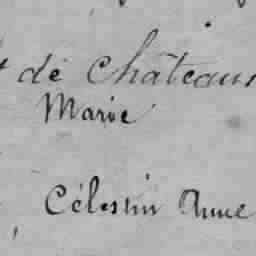 de Château
Marie
Célestin Anne